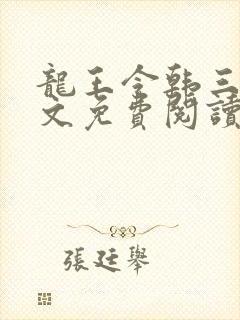 龍王令韩三
文免費閱讀
張廷舉